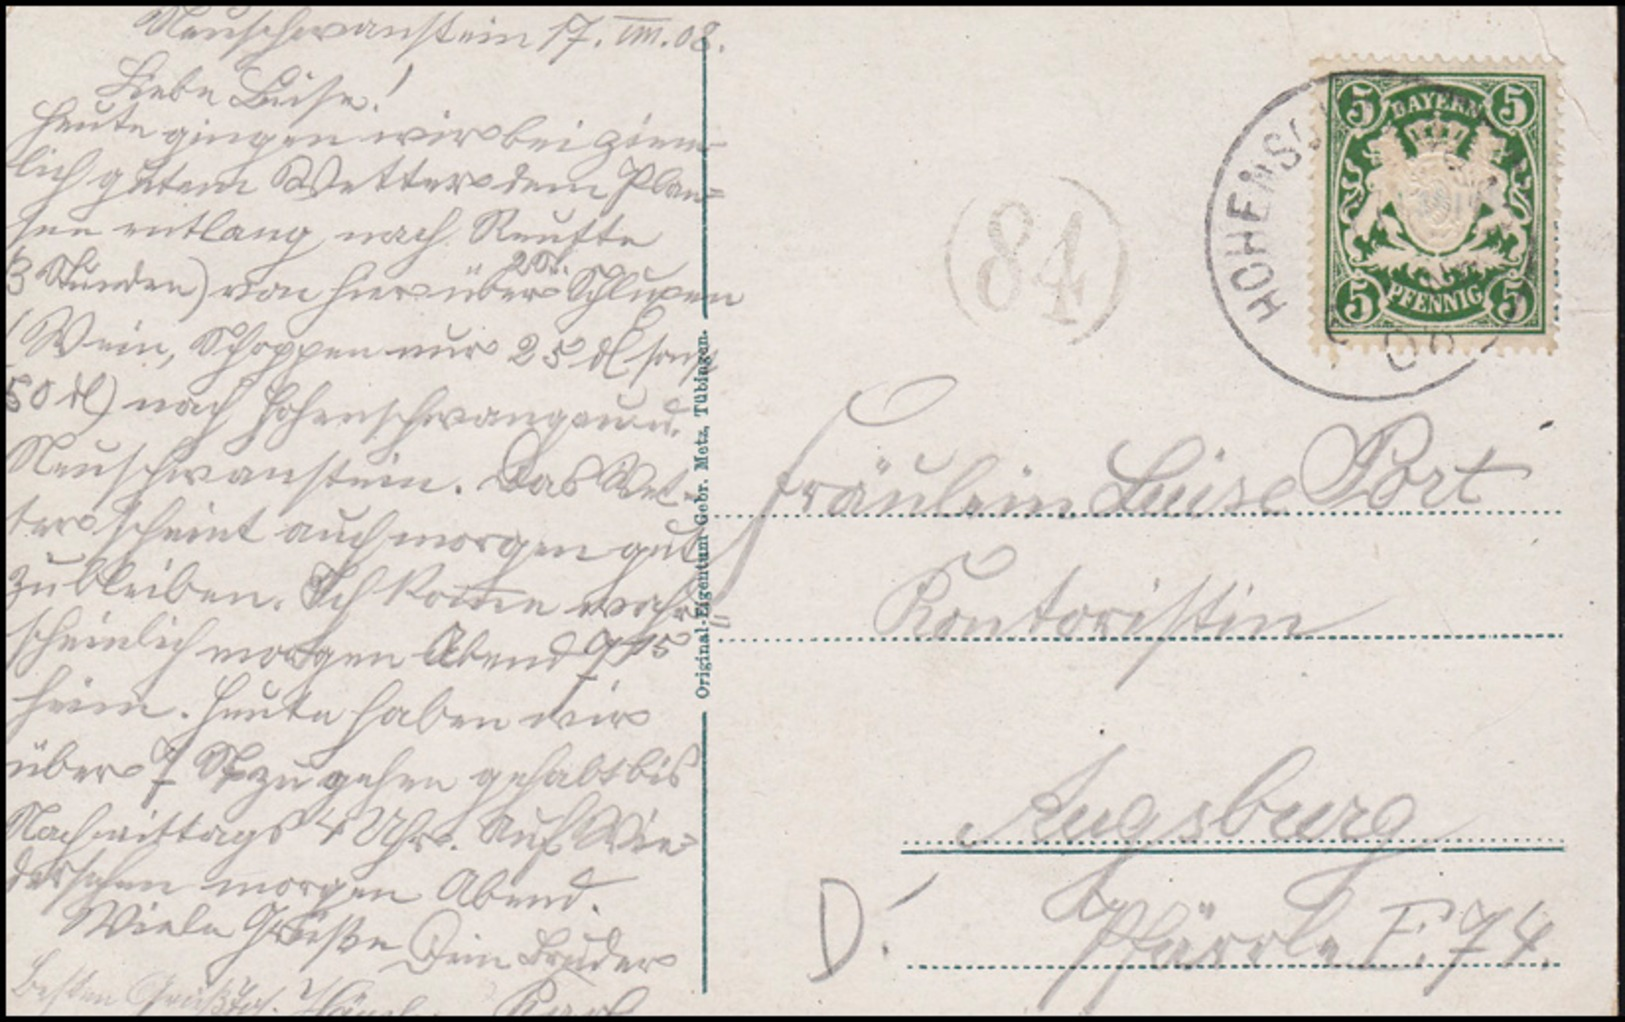 Neuschwanstein 17. VIII. 08.
Liebe Luise!
Heute gingen wir bei ziem-
lich gutem Wetter dem Plan=
see entlang nach Reutte
(3 Stunden) von hier über Schluxen
2 St.
(Wein, Schoppen nur 25 ₰ sonst
50 ₰) nach Hohenschwangau u.
Neuschwanstein. Das Wet-
ter scheint auch morgen gut
zu bleiben. Ich komme wahr=
scheinlich morgen Abend 7 15
heim. Heute haben wir
über 7 St zu gehen gehabt bis
Nachmittags 4 Uhr. Auf Wie-
dersehen morgen Abend.
Viele Grüße Dein Bruder
Besten Gruß Karl
Original-Eigentum Gebr. Metz, Tübingen.
HOHENS
08
5 BAYERN 5
5 PFENNIG 5
84
Fräulein Luise Port
Kontoristin
Augsburg
D. Pfärrle F. 74.